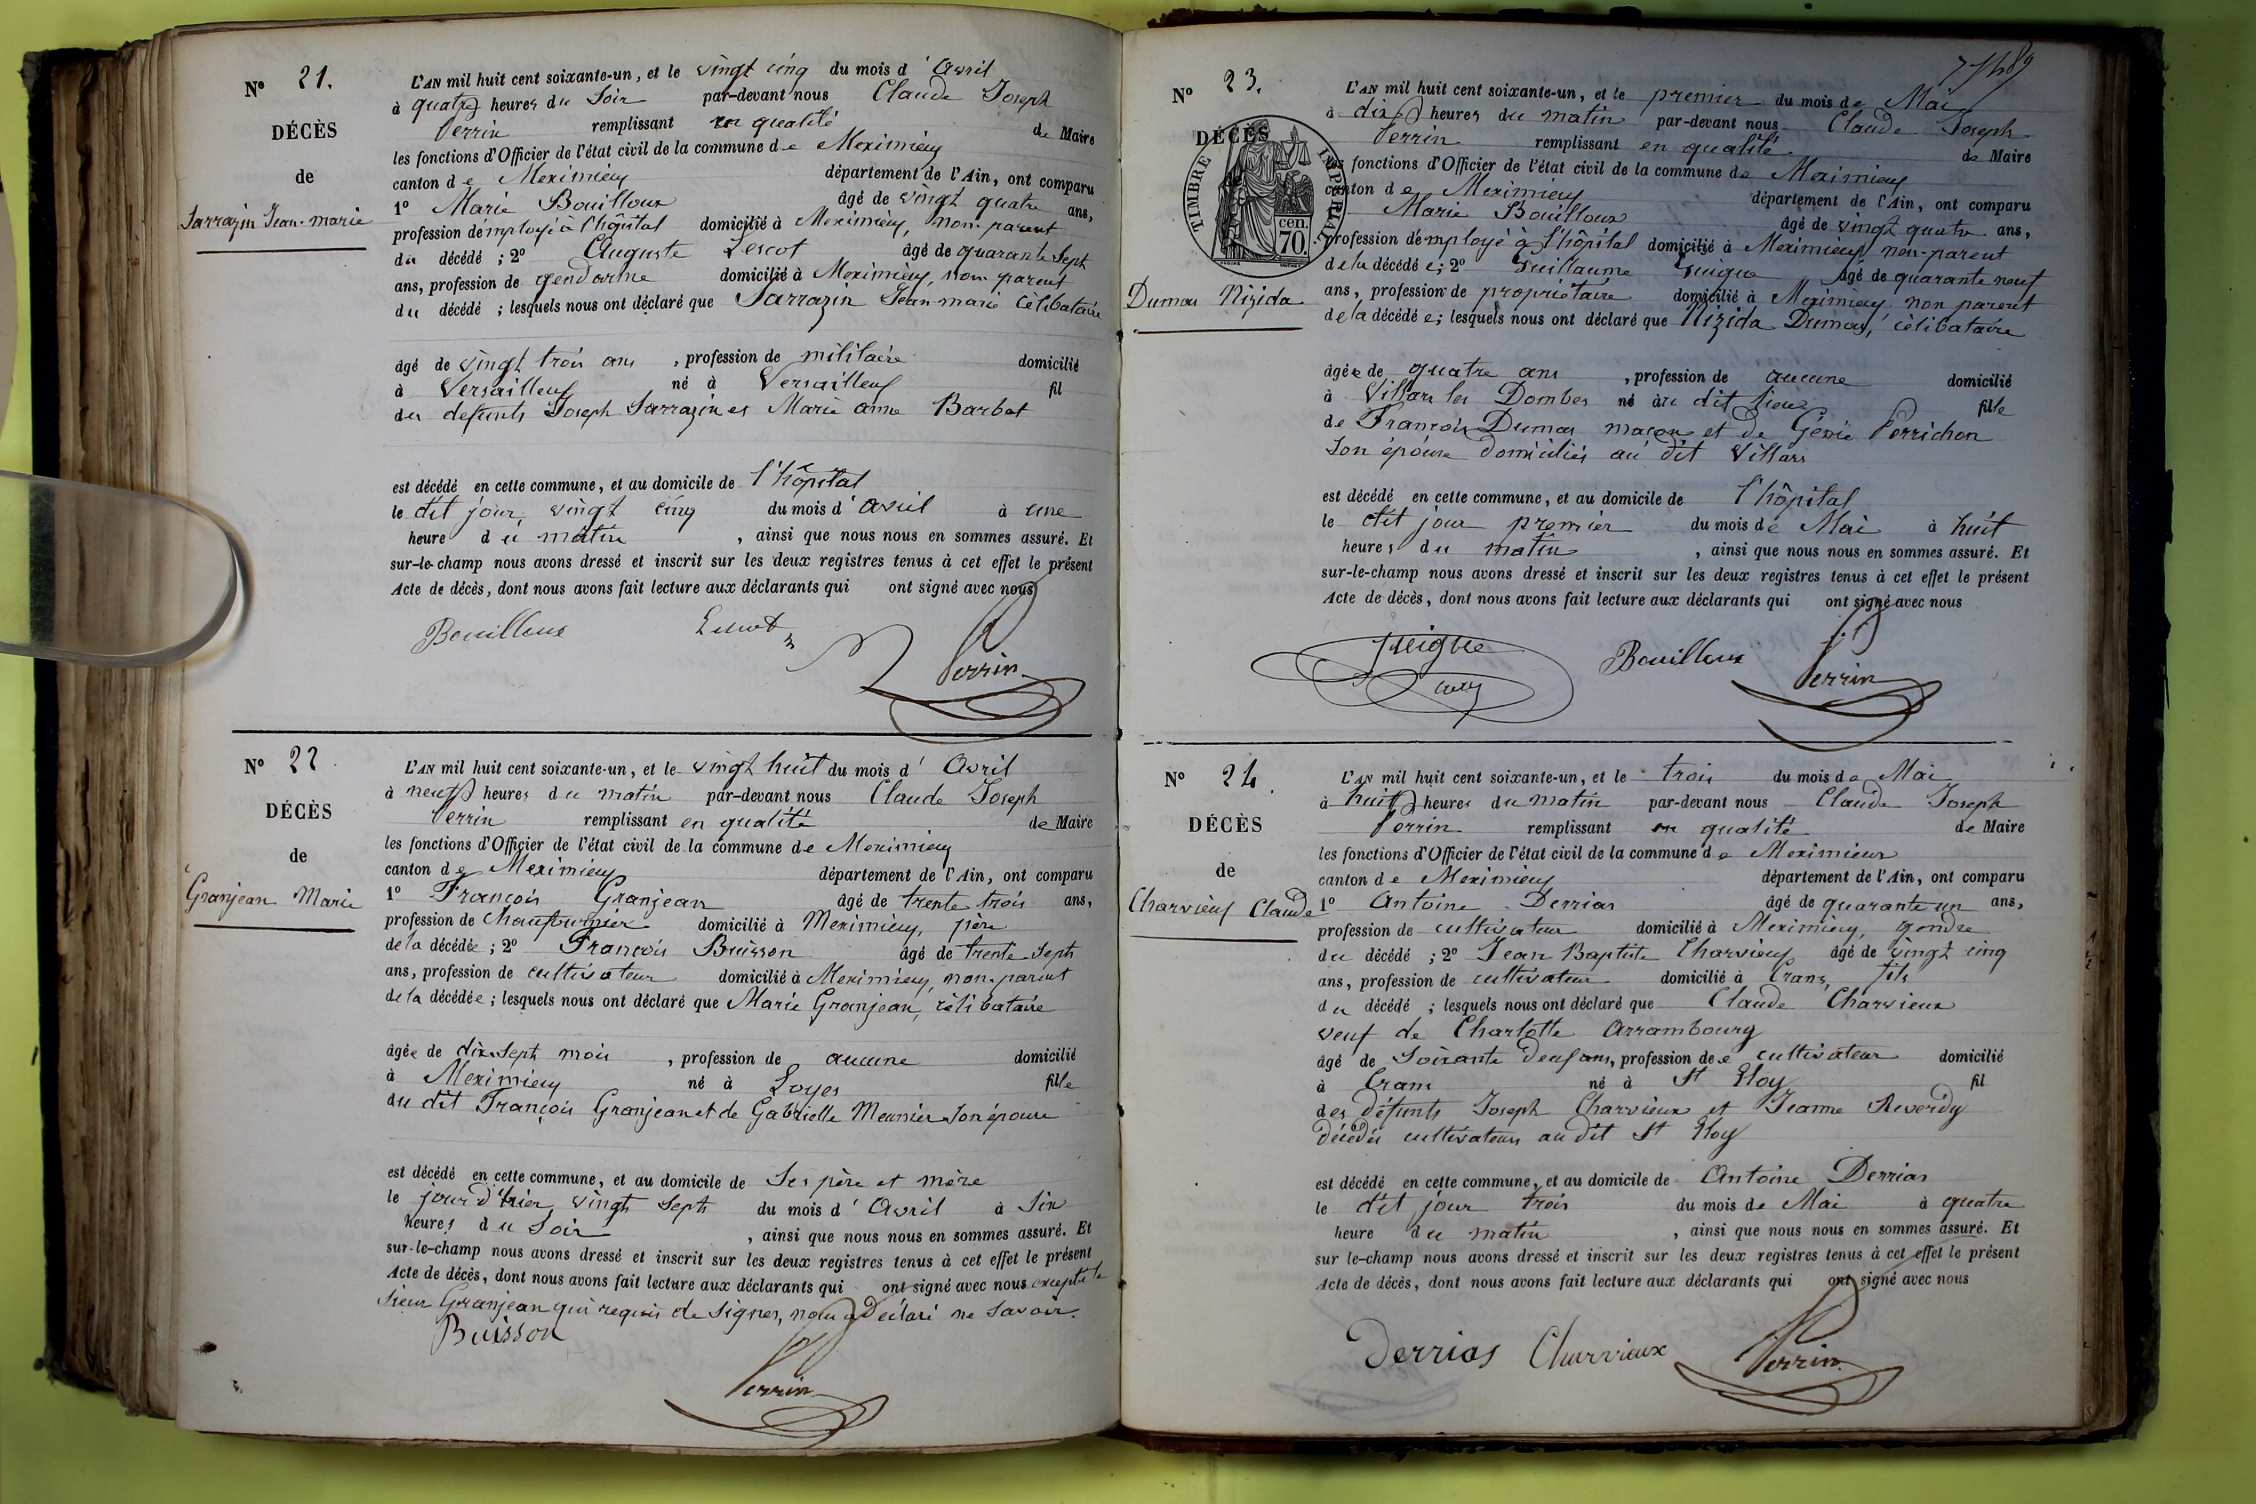 N° 21.
DÉCÈS
de
Sarrazin Jean-marie
L'AN mil huit cent soixante-un, et le vingt cinq du mois d'Avril
à quatre heures du Soir par-devant nous Claude Joseph
Perrin remplissant en qualité de Maire
les fonctions d'Officier de l'état civil de la commune de Meximieux
canton de Meximieux département de l'Ain, ont comparu
1° Marie Bouilloux âgé de vingt quatre ans,
profession d'employé à l'hôpital domicilié à Meximieux, non-parent
du décédé ; 2° Auguste Lescot âgé de quarante Sept
ans, profession de gendarme domicilié à Meximieux, non-parent
du décédé ; lesquels nous ont déclaré que Sarrazin Jean-marie célibataire
âgé de vingt trois ans , profession de militaire domicilié
à Versailleux né à Versailleux fil
des defunts Joseph Sarrazin et Marie anne Barbet
est décédé en cette commune, et au domicile de l'hôpital
le dit jour, vingt cinq du mois d'avril à une
heure du matin , ainsi que nous nous en sommes assuré. Et
sur-le-champ nous avons dressé et inscrit sur les deux registres tenus à cet effet le présent
Acte de décès, dont nous avons fait lecture aux déclarants qui ont signé avec nous
Bouilloux Lescot Perrin
N° 22
DÉCÈS
de
Granjean Marie
L'AN mil huit cent soixante-un, et le vingt huit du mois d'Avril
à neuf heures du matin par-devant nous Claude Joseph
Perrin remplissant en qualité de Maire
les fonctions d'Officier de l'état civil de la commune de Meximieux
canton de Meximieux département de l'Ain, ont comparu
1° François Granjean âgé de trente trois ans,
profession de Chaufournier domicilié à Meximieux, père
de la décédée ; 2° François Buisson âgé de trente Sept
ans, profession de cultivateur domicilié à Meximieux, non-parent
de la décédée ; lesquels nous ont déclaré que Marie Granjean, célibataire
âgée de dix-Sept mois , profession de aucune domicilié
à Meximieux né à Loyes fille
du dit François Granjean et de Gabrielle Meunier Son épouse
est décédé en cette commune, et au domicile de Ses père et mère
le jour d'hier vingt Sept du mois d'Avril à Six
heures du Soir , ainsi que nous nous en sommes assuré. Et
sur-le-champ nous avons dressé et inscrit sur les deux registres tenus à cet effet le présent
Acte de décès, dont nous avons fait lecture aux déclarants qui ont signé avec nous excepté le
Sieur Granjean qui requis de Signer, nous a Déclaré ne Savoir.
Buisson
Perrin
N° 23.
DÉCÈS
TIMBRE IMPERIAL
cen.
70.
Dumas Nizida
L'AN mil huit cent soixante-un, et le premier du mois de Mai
à dix heures du matin par-devant nous Claude Joseph
Perrin remplissant en qualité de Maire
les fonctions d'Officier de l'état civil de la commune de Meximieux
canton de Meximieux département de l'Ain, ont comparu
Marie Bouilloux âgé de vingt quatre ans,
profession d'employé à l'hôpital domicilié à Meximieux, non-parent
de la décédée ; 2° Guillaume Guigue âgé de quarante neuf
ans, profession de propriétaire domicilié à Meximieux non parent
de la décédée ; lesquels nous ont déclaré que Nizida Dumas, célibataire
âgée de quatre ans , profession de aucune domicilié
à Villars les Dombes né au dit lieu fille
de François Dumas maçon et de Génie Perrichon
Son épouse domiciliés au dit Villars
est décédé en cette commune, et au domicile de l'hôpital
le dit jour premier du mois de Mai à huit
heures du matin , ainsi que nous nous en sommes assuré. Et
sur-le-champ nous avons dressé et inscrit sur les deux registres tenus à cet effet le présent
Acte de décès, dont nous avons fait lecture aux déclarants qui ont signé avec nous
Guigue Bouilloux Perrin
N° 24.
DÉCÈS
de
Charvieux Claude
L'AN mil huit cent soixante-un, et le trois du mois de Mai
à huit heures du matin par-devant nous Claude Joseph
Perrin remplissant en qualité de Maire
les fonctions d'Officier de l'état civil de la commune de Meximieux
canton de Meximieux département de l'Ain, ont comparu
1° Antoine Derrias âgé de quarante un ans,
profession de cultivateur domicilié à Meximieux, gendre
du décédé ; 2° Jean Baptiste Charvieux âgé de vingt cinq
ans, profession de cultivateur domicilié à Crans, fils
du décédé ; lesquels nous ont déclaré que Claude Charvieux
veuf de Charlotte Arrambourg
âgé de Soixante deux ans, profession de cultivateur domicilié
à Crans né à St Eloy fil
des défunts Joseph Charvieux et Jeanne Reverdy
décédés cultivateurs au dit St Eloy
est décédé en cette commune, et au domicile de Antoine Derrias
le dit jour trois du mois de Mai à quatre
heure du matin , ainsi que nous nous en sommes assuré. Et
sur le-champ nous avons dressé et inscrit sur les deux registres tenus à cet effet le présent
Acte de décès, dont nous avons fait lecture aux déclarants qui ont signé avec nous
Derrias Charvieux Perrin